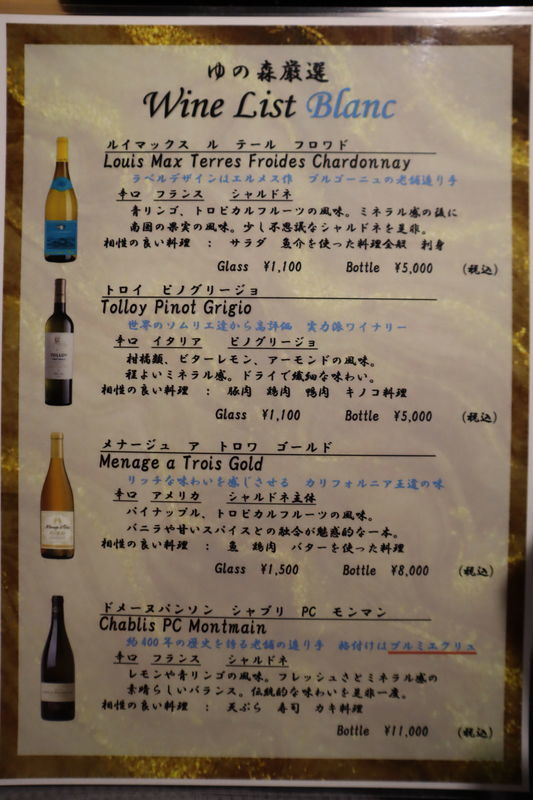 ゆの森厳選
Wine List Blanc
ルイマックス ル テール フロワド
Louis Max Terres Froides Chardonnay
ラベルデザインはエルメス作 ブルゴーニュの老舗造り手
辛口 フランス シャルドネ
青リンゴ、トロピカルフルーツの風味。ミネラル感の後に
南国の果実の風味。少し不思議なシャルドネを是非。
相性の良い料理 : サラダ 魚介を使った料理全般 刺身
Glass ¥1,100 Bottle ¥5,000 (税込)
トロイ ピノグリージョ
Tolloy Pinot Grigio
世界のソムリエ達から高評価 実力派ワイナリー
辛口 イタリア ピノグリージョ
柑橘類、ビターレモン、アーモンドの風味。
程よいミネラル感。ドライで繊細な味わい。
相性の良い料理 : 豚肉 鶏肉 鴨肉 キノコ料理
Glass ¥1,100 Bottle ¥5,000 (税込)
メナージュ ア トロワ ゴールド
Menage a Trois Gold
リッチな味わいを感じさせる カリフォルニア王道の味
辛口 アメリカ シャルドネ主体
パイナップル、トロピカルフルーツの風味。
バニラや甘いスパイスとの融合が魅惑的な一本。
相性の良い料理 : 魚 鶏肉 バターを使った料理
Glass ¥1,500 Bottle ¥8,000 (税込)
ドメーヌパンソン シャブリ PC モンマン
Chablis PC Montmain
約400年の歴史を誇る老舗の造り手 格付けはプルミエクリュ
辛口 フランス シャルドネ
レモンや青リンゴの風味。フレッシュさとミネラル感の
素晴らしいバランス。伝統的な味わいを是非一度。
相性の良い料理 : 天ぷら 寿司 カキ料理
Bottle ¥11,000 (税込)
TOLLOY